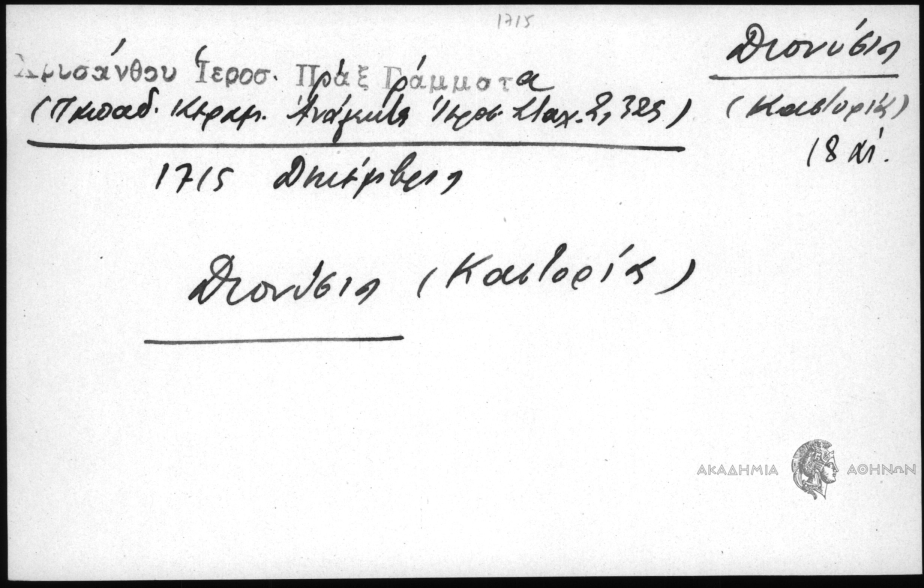 1715
Διονύσιος
Χρυσάνθου Ἱεροσ. Πράξ Γράμματα
(Παπαδ. Κεραμ. Ἀνάλεκτα Ἱεροσ. Σταχ. 2, 325)
(Καστορίας)
18 αἰ.
1715 Δεκέμβριος
Διονύσιος (Καστορίας)
ΑΚΑΔΗΜΙΑ ΑΘΗΝΩΝ